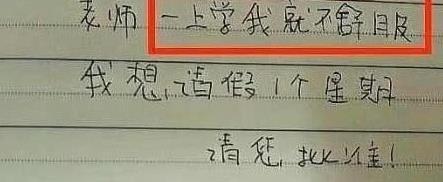 老师 一上学我就不舒服
我想请假1个星期
请您批准!